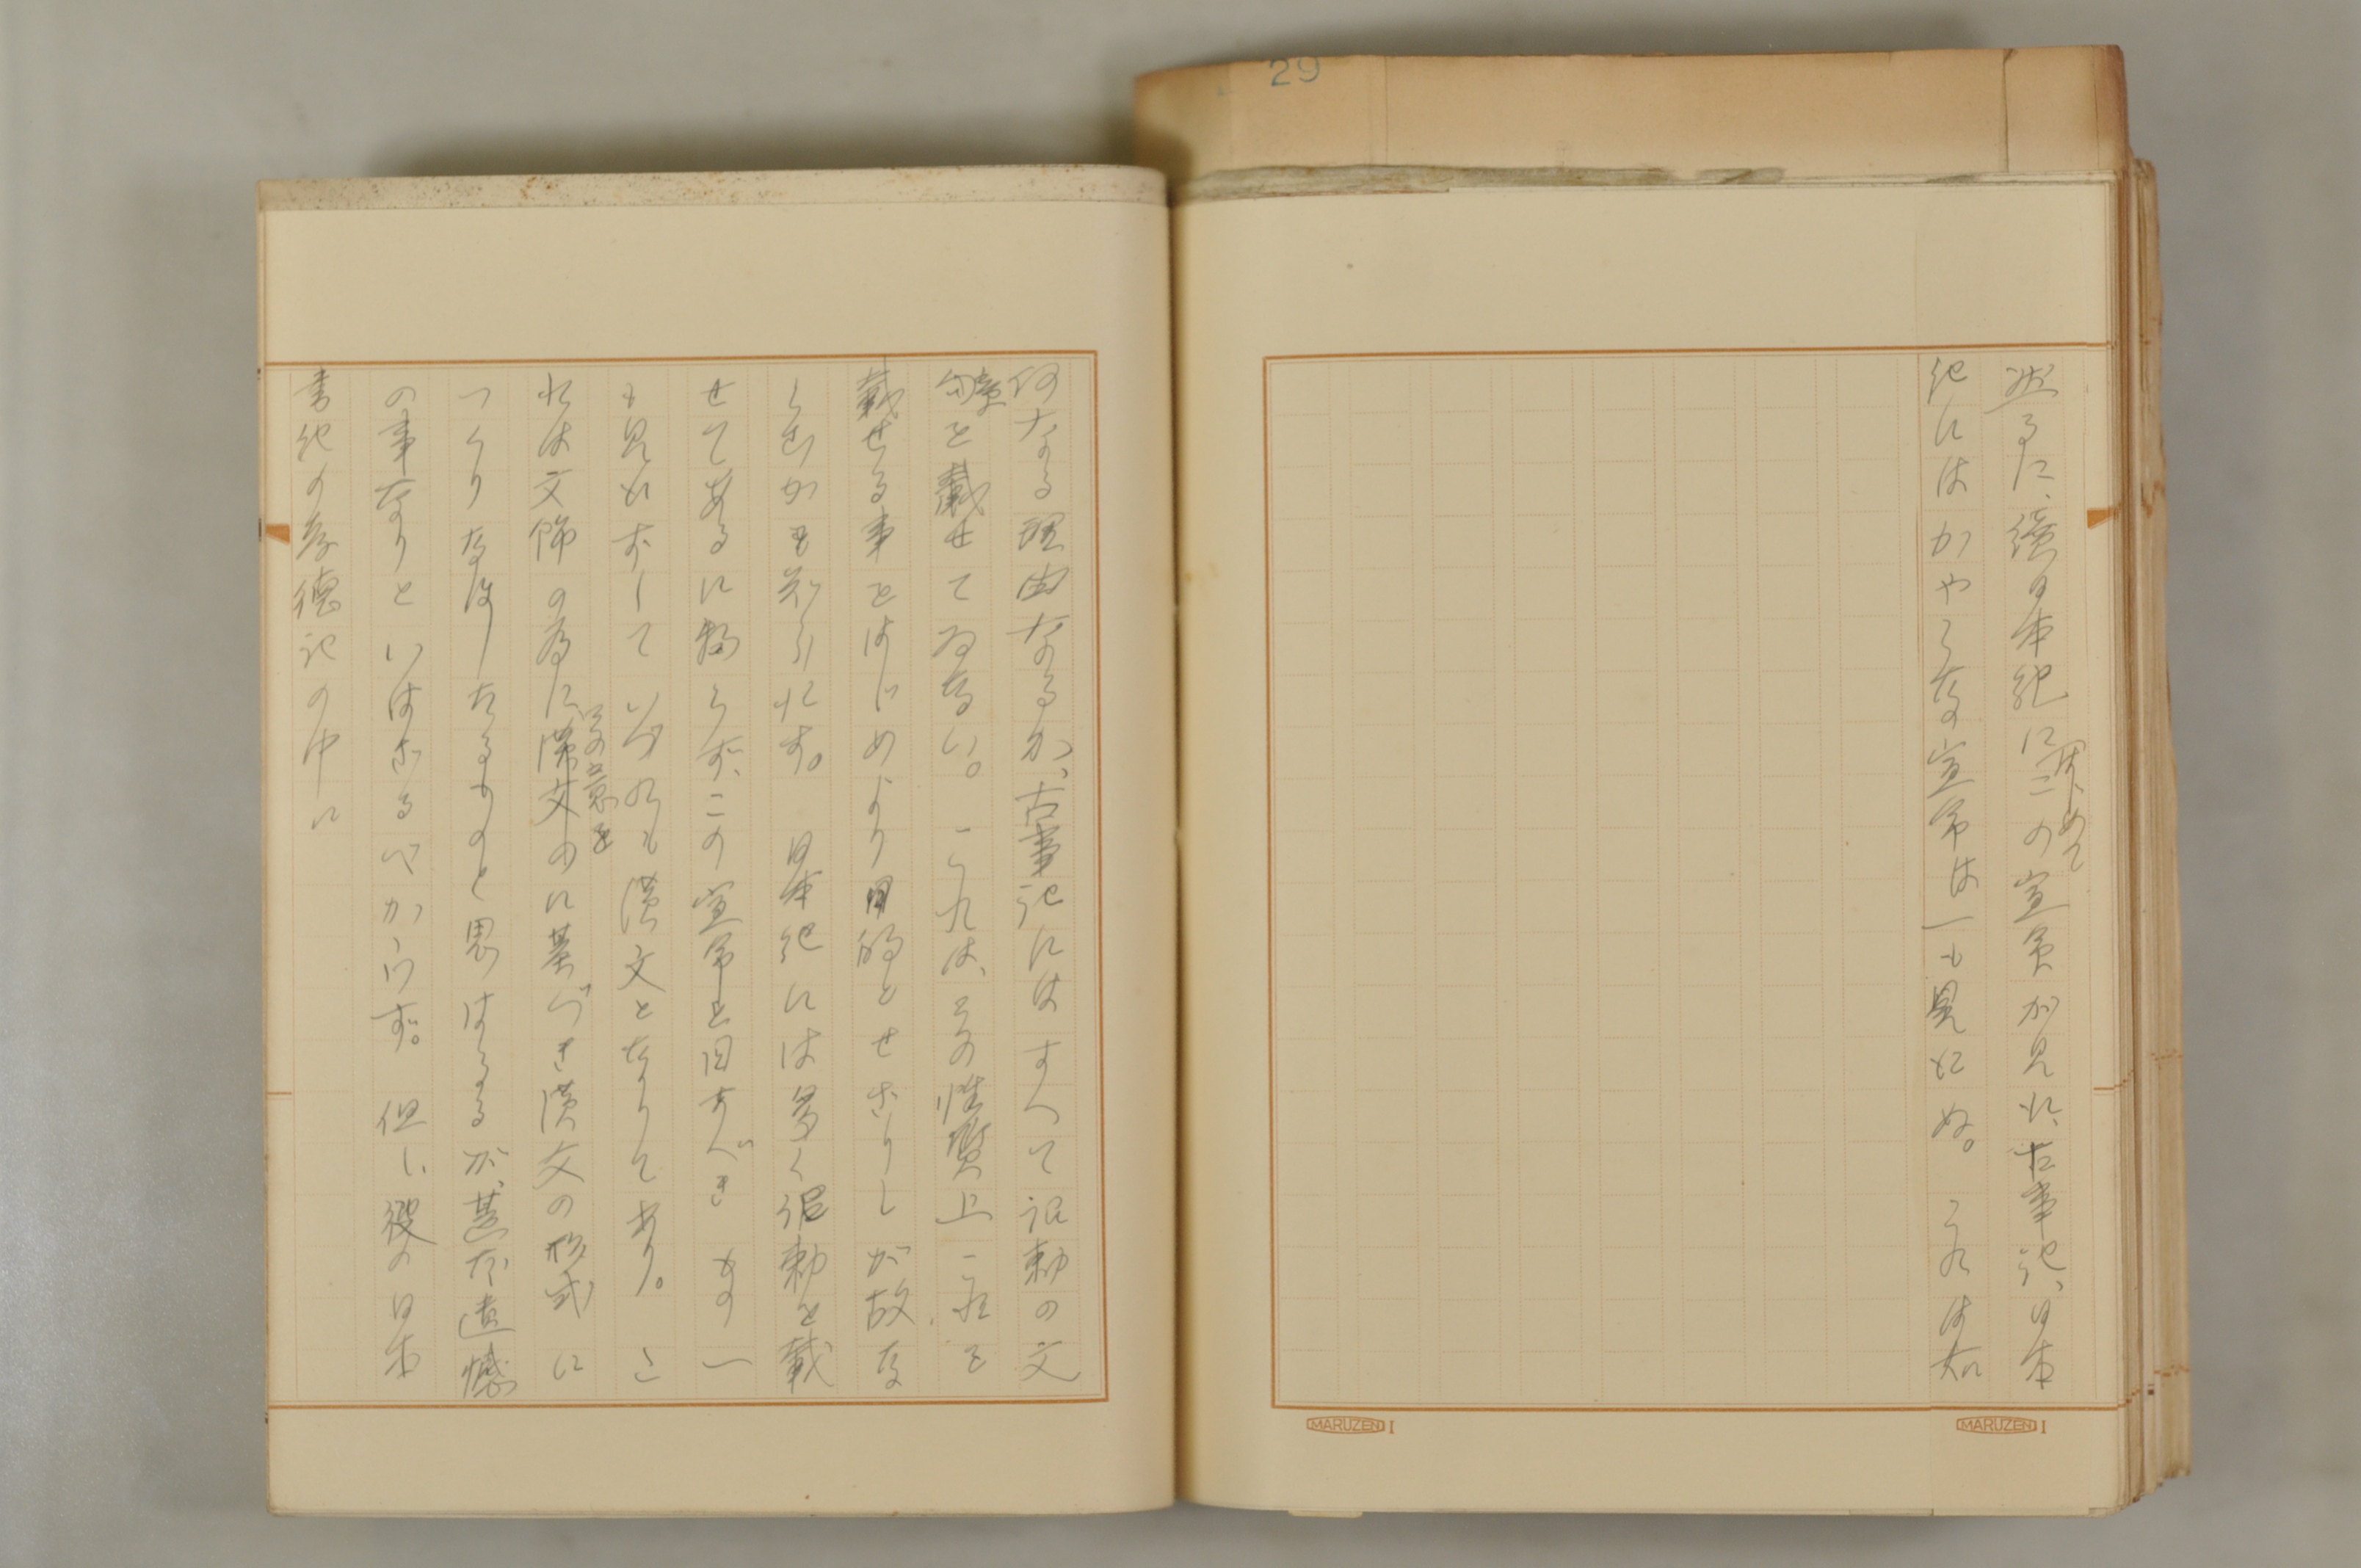 29
然るに、續日本紀に二の宣命が見え、古事記、日本
はじめて
紀にはかやうな宣命は一も見えぬ。これは如
何なる理由なるか、古事記にはすべて詔勅の文
章を載せてゐない。これは、その性質上これを
載せる事をはじめより目的とせざりしが故な
らむか
す。日本紀には多く詔勅を載
せてあるに拘らず、この宣命と目すべきもの一
も見えずしていづれも漢文となりてあり。こ
れは文飾の為に
その意を
に基づき漢文の形式に
つくりなほしたるものと思はるるが、甚だ遺憾
の事なりといはざるべからず。但し、彼の日本
書紀の孝徳記の中に
MARUZEN I
MARUZEN I